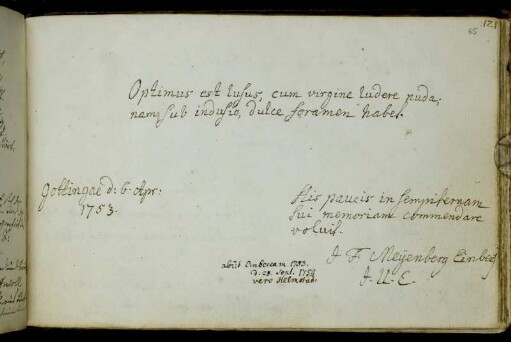 65 121
Optimus est lusus, cum virgine ludere puda,
nam sub indusio, dulce foramen habet.
Gottingae d: 6 Apr:
1753.
His paucis in sempiternam
sui memoriam commendare
voluit.
J F Meÿenberg Einbec
J. U. C.
abiit Einbecam 1753.
d. 29. Sept. 1754
vero Helmstad: